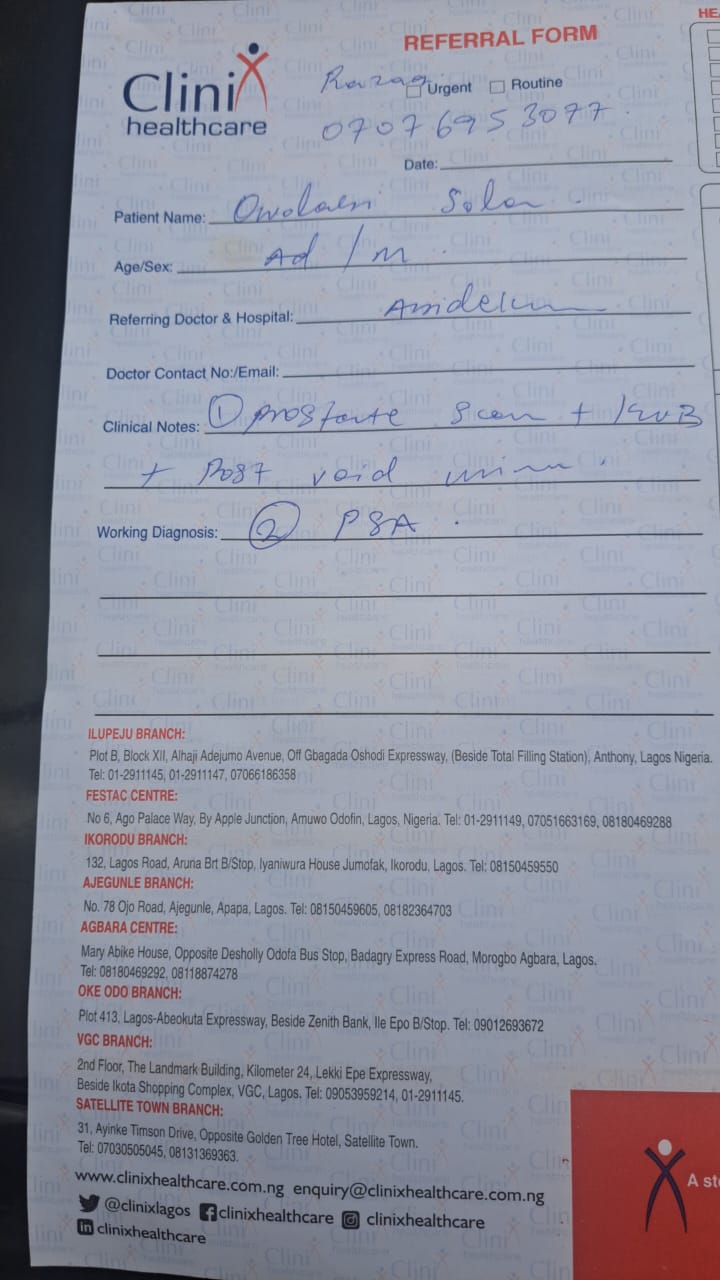 REFERRAL FORM
HE
Clinix
healthcare
Razaq Urgent Routine
07076953077
Date:
Patient Name: Sola
Age/Sex: Ad / M
Referring Doctor & Hospital:
Doctor Contact No:/Email:
Clinical Notes: ① prostate scan + KUB
+ Post void
Working Diagnosis: ② PSA
ILUPEJU BRANCH:
Plot B, Block XII, Alhaji Adejumo Avenue, Off Gbagada Oshodi Expressway, (Beside Total Filling Station), Anthony, Lagos Nigeria.
Tel: 01-2911145, 01-2911147, 07066186358
FESTAC CENTRE:
No 6, Ago Palace Way, By Apple Junction, Amuwo Odofin, Lagos, Nigeria. Tel: 01-2911149, 07051663169, 08180469288
IKORODU BRANCH:
132, Lagos Road, Aruna Brt B/Stop, Iyaniwura House Jumofak, Ikorodu, Lagos. Tel: 08150459550
AJEGUNLE BRANCH:
No. 78 Ojo Road, Ajegunle, Apapa, Lagos. Tel: 08150459605, 08182364703
AGBARA CENTRE:
Mary Abike House, Opposite Desholly Odofa Bus Stop, Badagry Express Road, Morogbo Agbara, Lagos.
Tel: 08180469292, 08118874278
OKE ODO BRANCH:
Plot 413, Lagos-Abeokuta Expressway, Beside Zenith Bank, Ile Epo B/Stop. Tel: 09012693672
VGC BRANCH:
2nd Floor, The Landmark Building, Kilometer 24, Lekki Epe Expressway,
Beside Ikota Shopping Complex, VGC, Lagos. Tel: 09053959214, 01-2911145.
SATELLITE TOWN BRANCH:
31, Ayinke Timson Drive, Opposite Golden Tree Hotel, Satellite Town.
Tel: 07030505045, 08131369363.
www.clinixhealthcare.com.ng enquiry@clinixhealthcare.com.ng
@clinixlagos clinixhealthcare clinixhealthcare
clinixhealthcare
A st